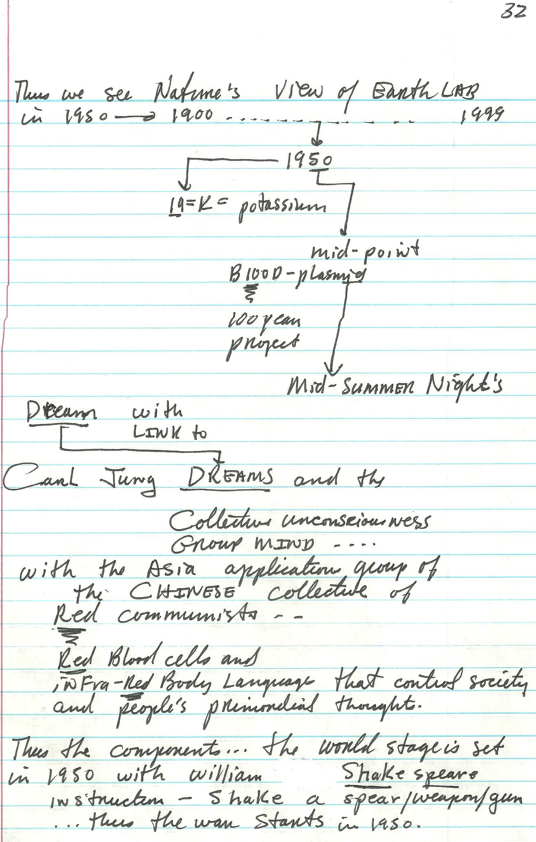 32
Thus we see Nature's View of Earth LAB
in 1950 → 1900 .................. 1999
1950
19 = K = potassium
mid-point
B100D-plasmid
100 year
project
Mid-SUMMER Night's
Dream with
LINK to
Carl Jung DREAMS and the
Collective unconsciousness
Group MIND ....
with the Asia application group of
the CHINESE collective of
Red communists --
Red Blood cells and
inFra-Red Body Language that control society
and people's primordial thought.
Thus the components... the world stage is set
in 1950 with william Shakespeare
instruction - Shake a spear/weapon/gun
... thus the war Starts in 1950.